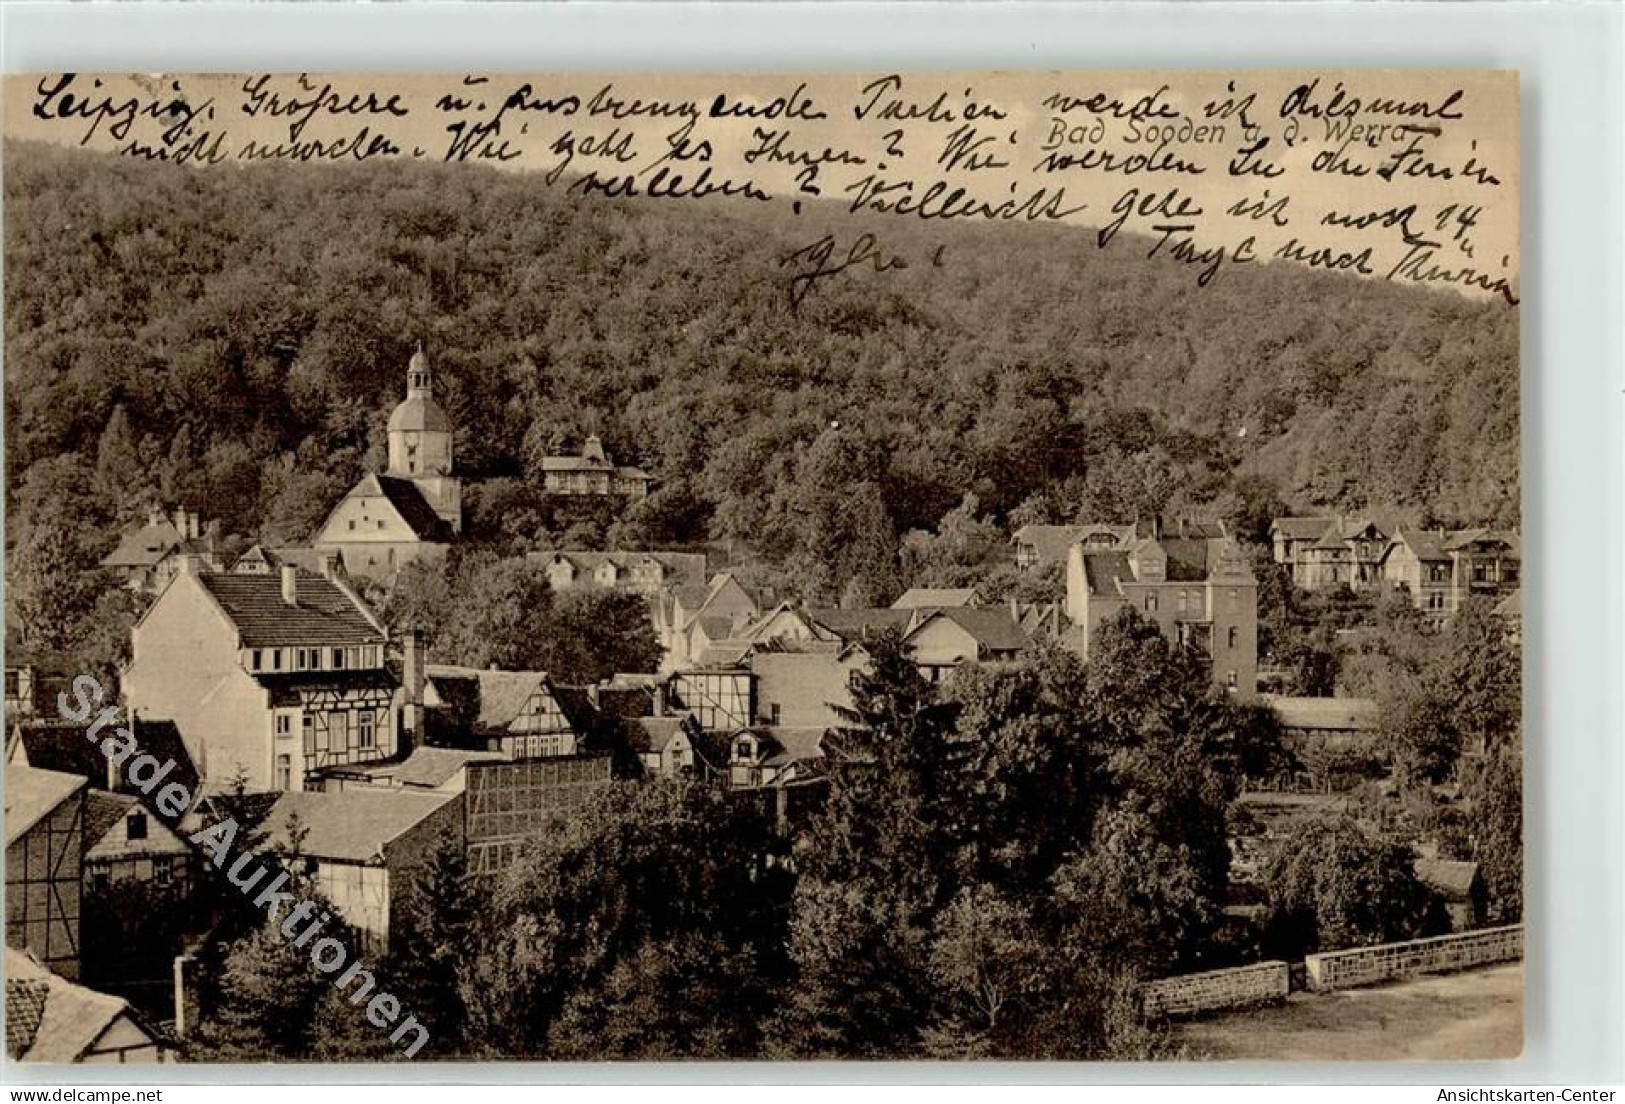 Leipzig. Größere u. Anstrengende Partien werde ich diesmal
Bad Sooden a. d. Werra
nicht machen. Wie geht es Ihnen? Wie werden Sie die Ferien
verleben? Vielleicht gehe ich noch 14
Tage nach Thürin
gen.
Stade Auktionen
delcampe.net
Ansichtskarten-Center